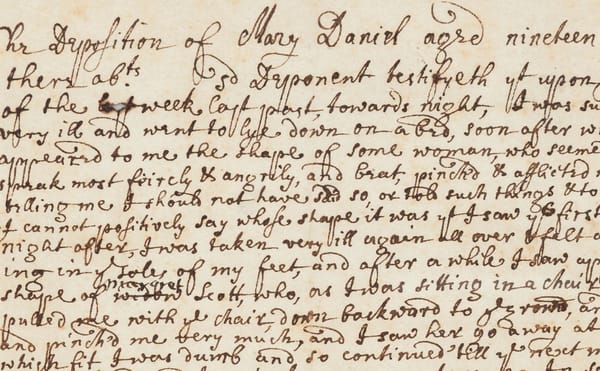 he Deposition of Mary Daniel aged nineteen
there abts sd Deponent testifyeth yt upon
of the week last past, towards night, I was su
very ill and went to lye down on a bed, soon after w
appeared to me the shape of some woman, who seeme
speak most feircly & angrily, and beat, pinch'd & afflicted
telling me I should not have said so, or told such things & to
I cannot positively say whose shape it was yt I saw ye first
night after, I was taken very ill again all over & felt a
ing in ye soles of my feet, and after a while I saw ap
shape of margret Scott who, as I was sitting in a chair
pulled me with ye chair, down backward to ye ground, an
and pinch'd me very much, and I saw her go away at
which fit I was dumb and so continued till ye next m